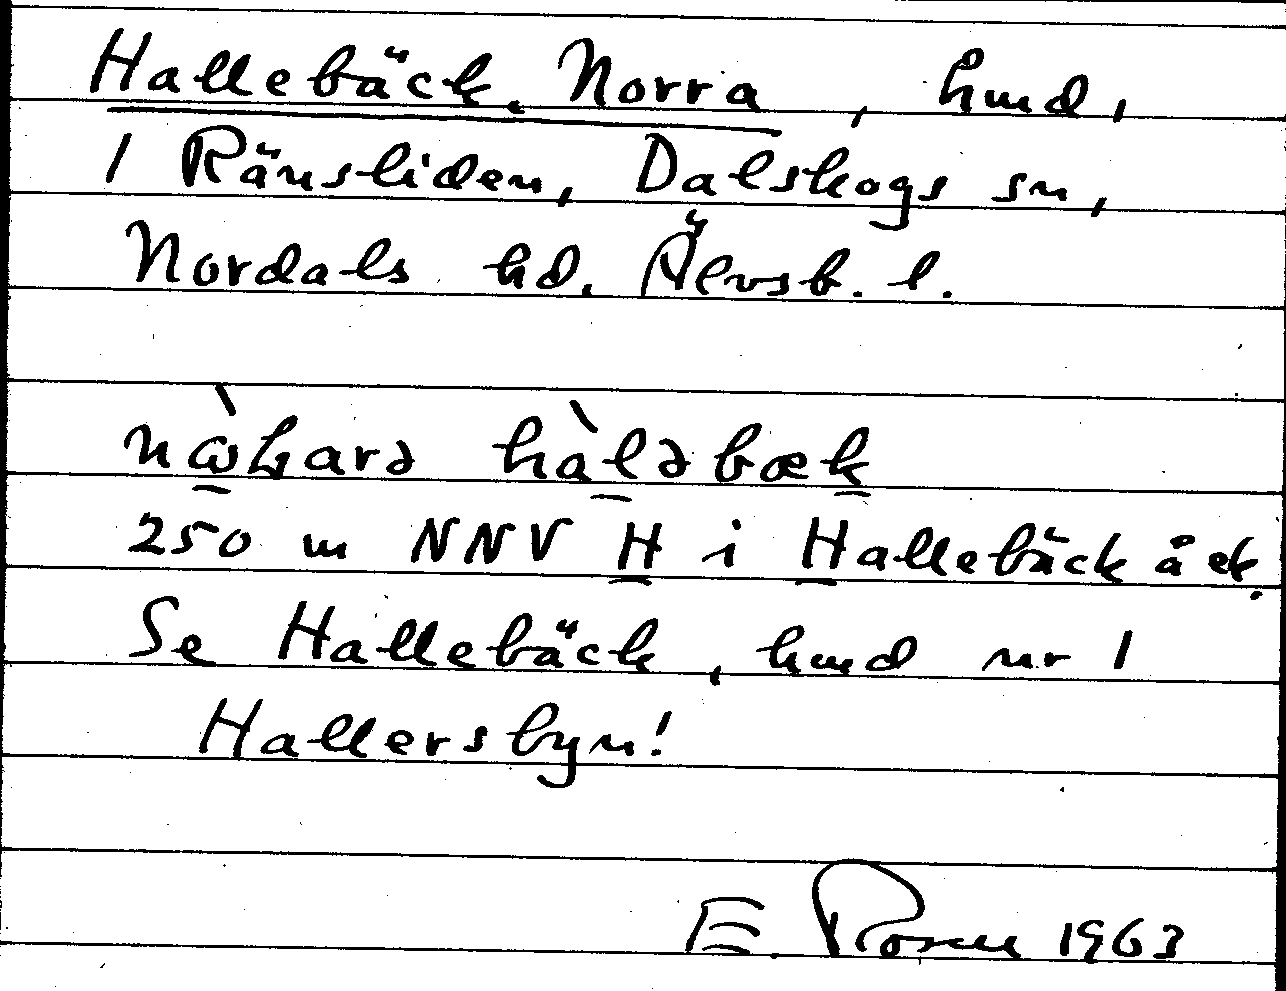 Hallebäck, Norra, hmd,
1 Ränsliden, Dalskogs sn,
Nordals hd. Älvsb. l.
250 m NNV H i Hallebäck å ek.
Se Hallebäck, hmd nr 1
Hallersbyn!
E. Rosen 1963